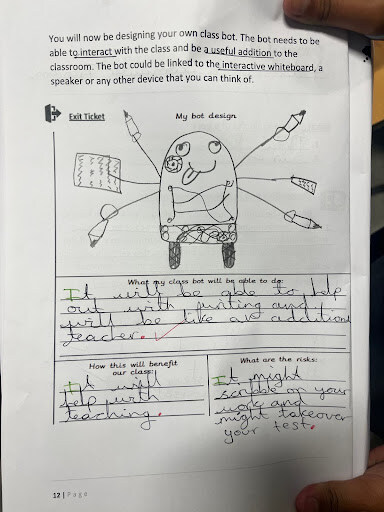 You will now be designing your own class bot. The bot needs to be
able to interact with the class and be a useful addition to the
classroom. The bot could be linked to the interactive whiteboard, a
speaker or any other device that you can think of.
Exit Ticket
My bot design
What my class bot will be able to do:
It will be able to help
out with writing and
will be like an additional
teacher.
How this will benefit
our class:
It will
help with
teaching.
What are the risks:
It might
scribble on your
work and
might takeover
your test.
12 | Page